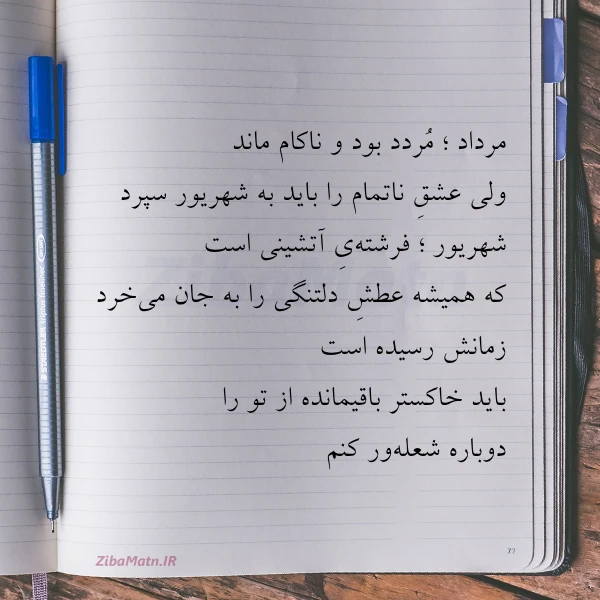 مرداد ؛ مُردد بود و ناکام ماند
ولی عشقِ ناتمام را باید به شهریور سپرد
شهریور ؛ فرشته‌یِ آتشینی است
که همیشه عطشِ دلتنگی را به جان می‌خرد
زمانش رسیده است
باید خاکستر باقیمانده از تو را
دوباره شعله‌ور کنم
77
ZibaMatn.IR